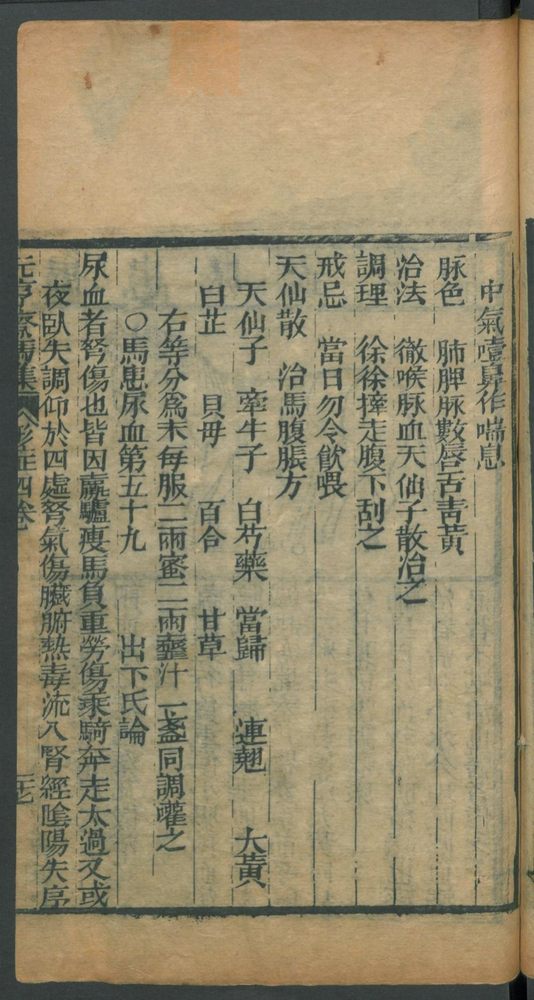 中氣噎鼻作喘息
脉色　肺脾脉數唇舌青黃
治法　徹喉脉血天仙子散治之
調理　徐徐撁走腹下刮之
戒忌　當日勿令飲喂
天仙散　治馬腹脹方
天仙子　牽牛子　白芍藥　當歸　連翹　大黃
白芷　貝母　百合　甘草
右等分爲末每服二兩蜜二兩虀汁一盞同調灌之
○馬患尿血第五十九　出卞氏論
尿血者努傷也皆因羸驢瘦馬負重勞傷乘騎奔走太過又或
夜臥失調仰於四虛努氣傷臟腑熱毒流入腎經陰陽失序
元亨療馬集　四卷